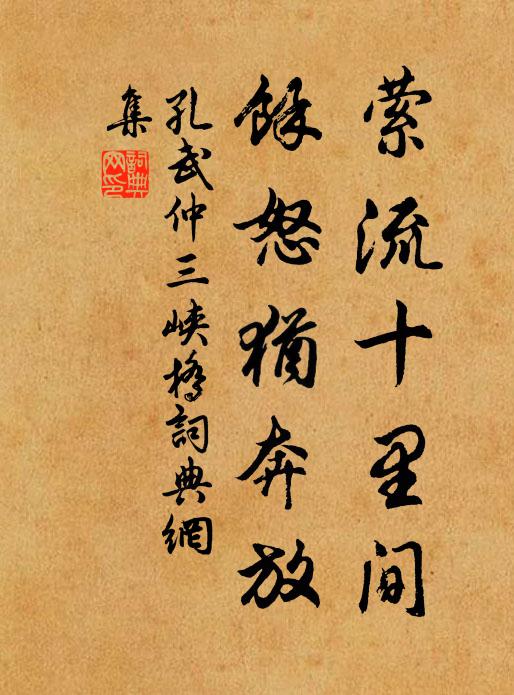 萦流十里间
餘怒猶奔放
孔武仲三峽橋詞典網
集
詞典
网印